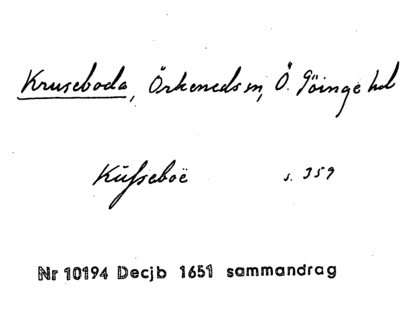 Kruseboda, Örkeneds sn, Ö. Göinge hd
Küsseboë s. 359
Nr 10194 Decjb 1651 sammandrag